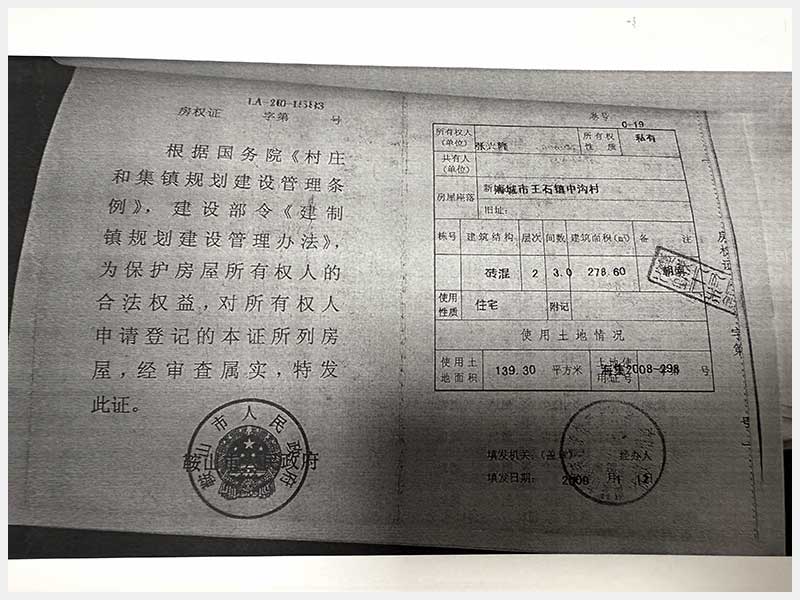 LA-200-15583
房权证 字第 号
根据国务院《村庄
和集镇规划建设管理条
例》，建设部令《建制
镇规划建设管理办法》，
为保护房屋所有权人的
合法权益，对所有权人
申请登记的本证所列房
屋，经审查属实，特发
此证。
鞍山市人民政府
鞍山市人民政府
卷号
0-19
所有权人(单位) 所有权性质 私有
共有人(单位)
房屋座落 新 海城市王石镇中沟村
旧址:
栋号 建筑结构 层次 间数 建筑面积(m²) 备 注
砖混 2 3.0 278.60
使用性质 住宅 附记
使用土地情况
使用土地面积 139.30 平方米 土地使用证号 海集2008-298 号
填发机关:(盖章) 经办人
填发日期: 月
房权证 字第 号